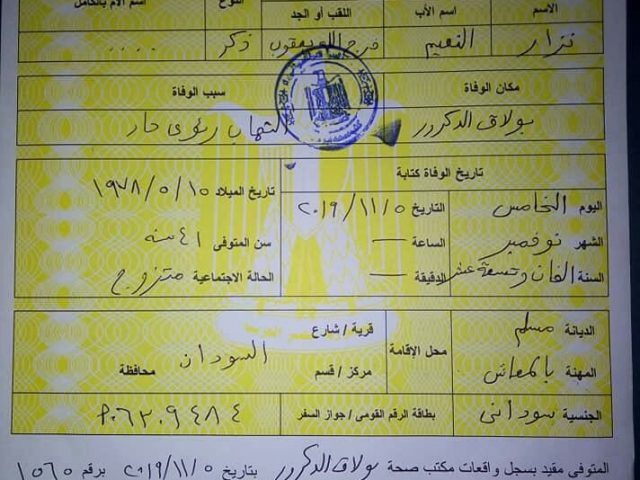 الاسم اسم الأب اللقب أو الجد النوع اسم الأم بالكامل
نزار النعيم فرج الله يعقوب ذكر ....
مكان الوفاة سبب الوفاة
بولاق الدكرور التهاب رئوى حاد
تاريخ الوفاة كتابة
اليوم الخامس التاريخ ٢٠١٩/١١/٥ تاريخ الميلاد ١٩٧٨/٥/١٥
الشهر نوفمبر الساعة — سن المتوفى ٤١ سنه
السنة الفان وتسعة عشر الدقيقة — الحالة الاجتماعية متزوج
الديانة مسلم محل الإقامة قرية / شارع
المهنة بالمعاش مركز / قسم السودان محافظة
الجنسية سودانى بطاقة الرقم القومى / جواز السفر
المتوفى مقيد بسجل واقعات مكتب صحة بولاق الدكرور بتاريخ ٢٠١٩/١١/٥ برقم ١٥٦٥